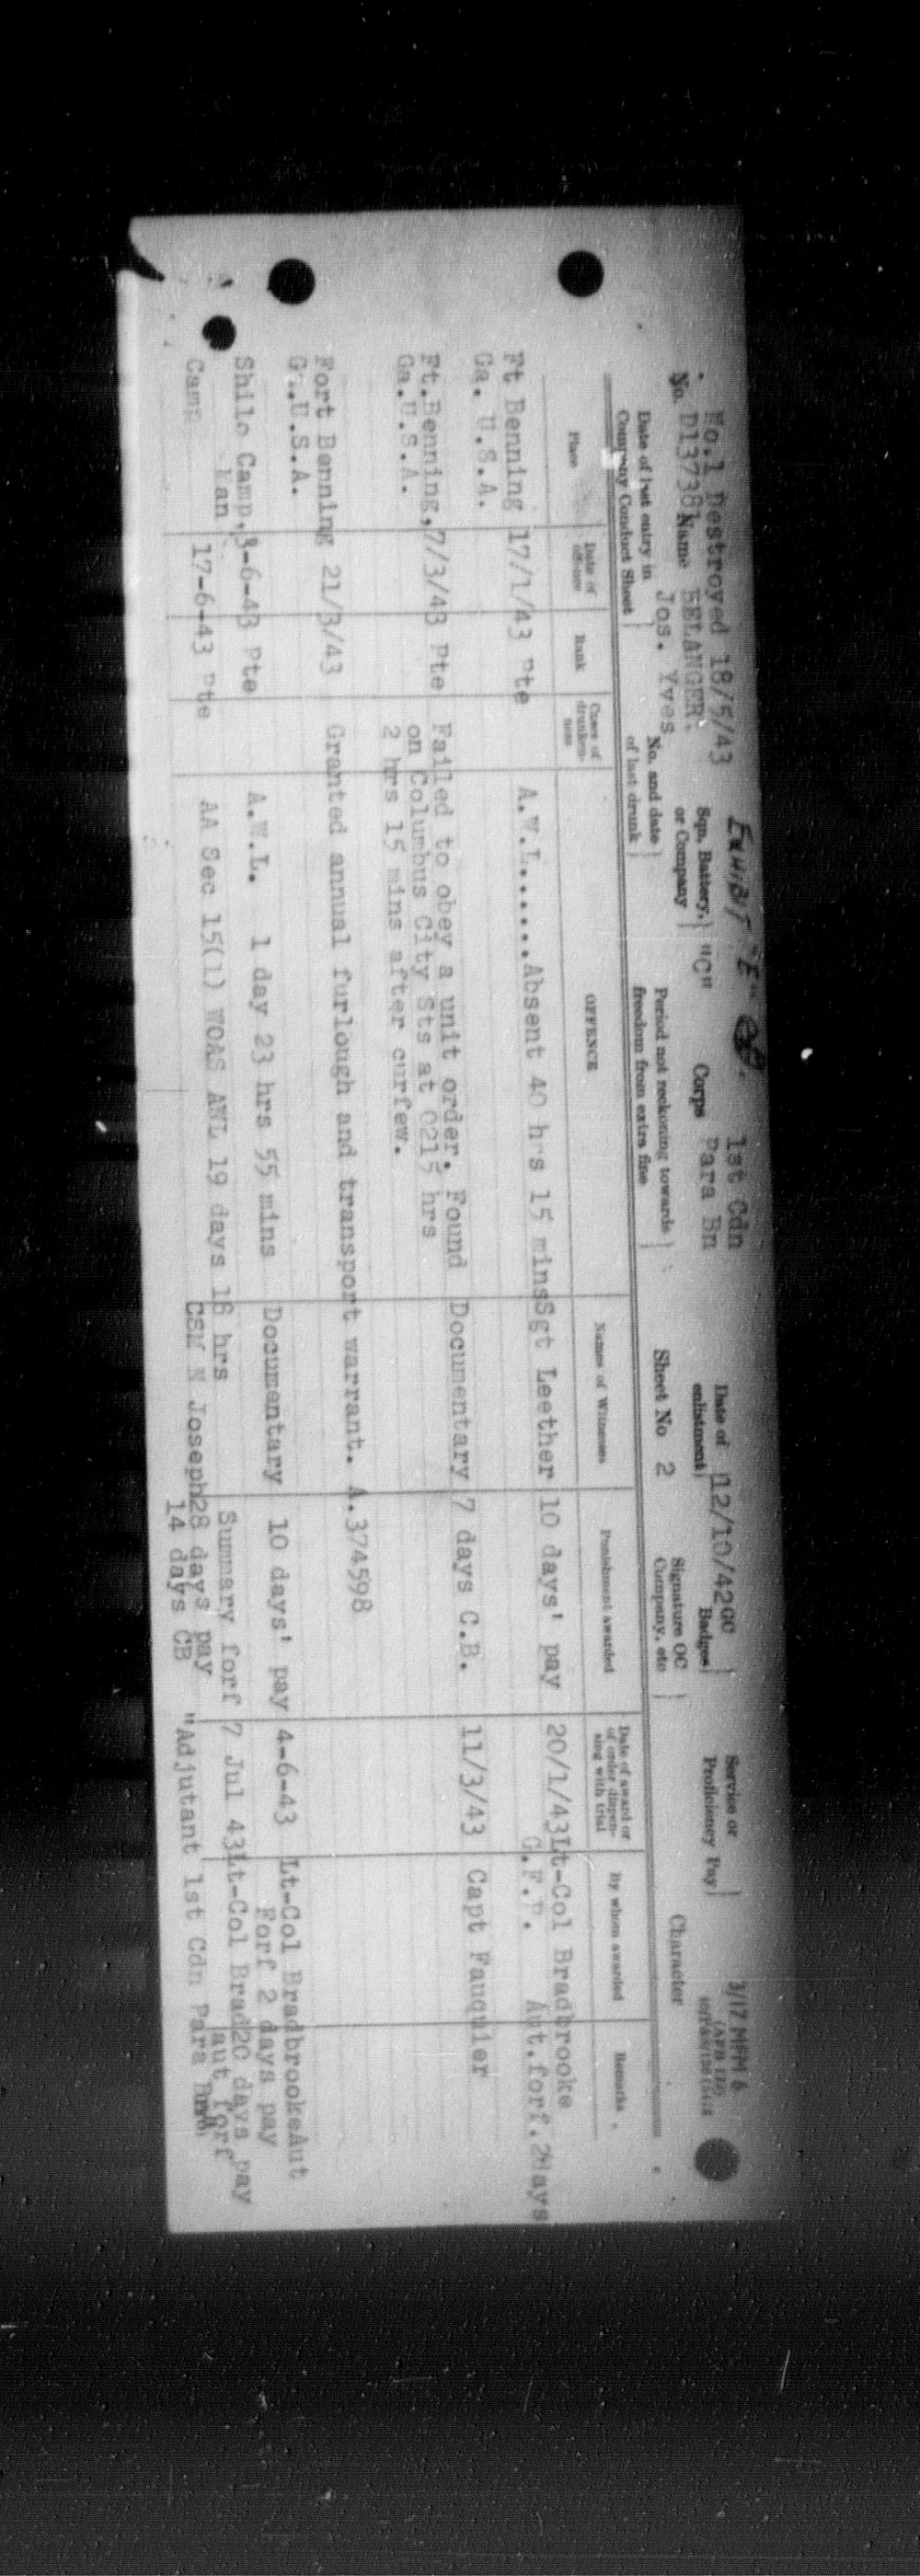 EXHIBIT "E"
No.1 Destroyed 18/5/43
1st Cdn
3/17 MFM 6
No. D13738 Name BELANGER. Sqn. Battery, or Company } "C" Corps Para Bn Date of enlistment } 12/10/42 GC Badges } Service or Proficiency Pay }
Jos. Yves
Date of last entry in Company Conduct Sheet } No. and date of last drunk } Period not reckoning towards freedom from extra fine } Sheet No 2 Signature OC Company, etc } Character
Place Date of offence Rank Cases of drunkenness OFFENCE Names of Witnesses Punishment awarded Date of award or of order dispensing with trial By whom awarded Remarks
Ft Benning 17/1/43 Pte A.W.L......Absent 40 hrs 15 mins Sgt Leether 10 days' pay 20/1/43 Lt-Col Bradbrooke
Ga. U.S.A. Aut.forf.
Ft.Benning, 7/3/43 Pte Failed to obey a unit order. Found Documentary 7 days C.B. 11/3/43 Capt Fauquier
Ga.U.S.A. on Columbus City Sts at 0215 hrs
2 hrs 15 mins after curfew.
Fort Benning 21/3/43 Granted annual furlough and transport warrant. A.374598
Ga.U.S.A.
Shilo Camp, 3-6-43 Pte A.W.L. 1 day 23 hrs 55 mins Documentary 10 days' pay 4-6-43 Lt-Col Bradbrooke Aut
Man Forf 2 days pay
Camp 17-6-43 Pte AA Sec 15(1) WOAS AWL 19 days 18 hrs Summary forf 7 Jul 43 Lt-Col Brad 20 days pay
CSM N Joseph 28 days pay aut forf
14 days CB "Adjutant 1st Cdn Para Bn"